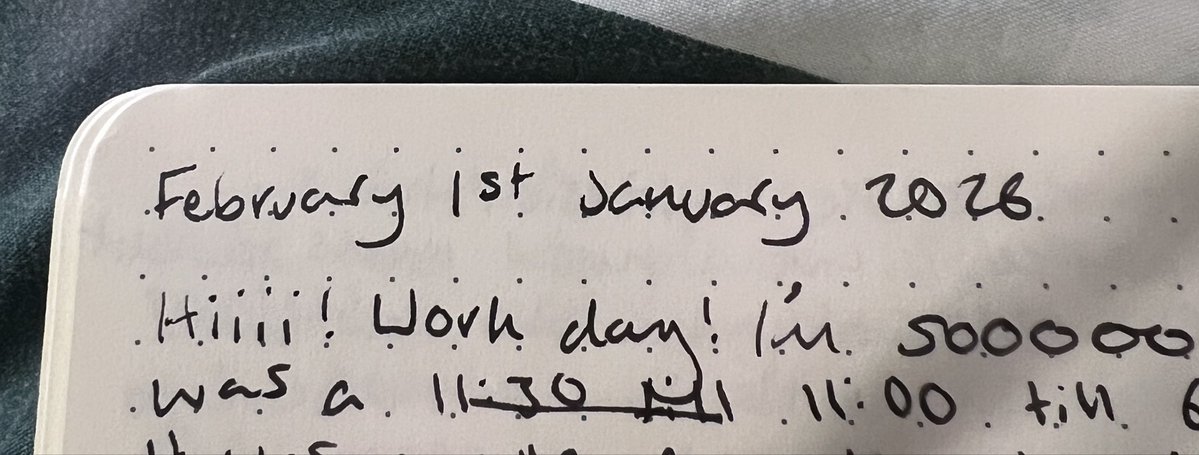 February 1st January 2026
Hiiii! Work day! I'm soooooo
was a 11:30 till 11:00 till